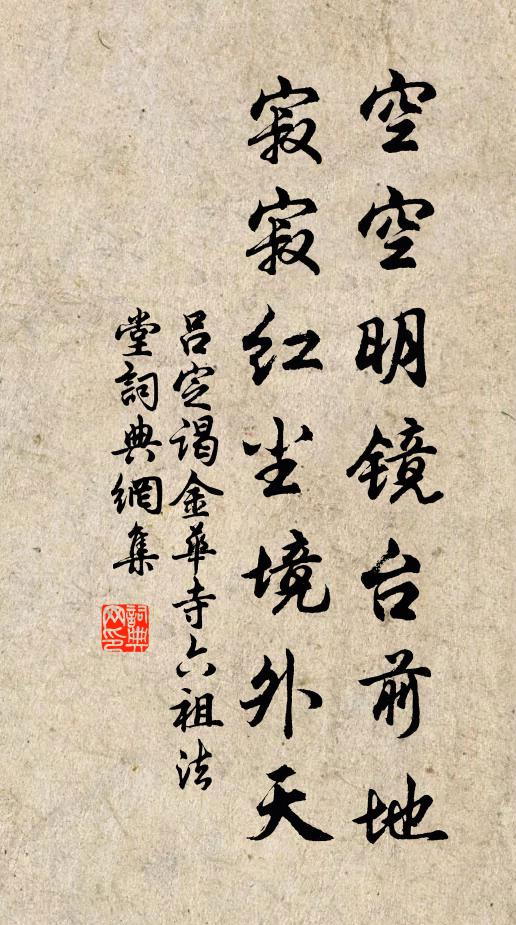 空空明镜台前地
寂寂红尘境外天
吕定谒金华寺六祖法
堂詞典網集
詞典
网印